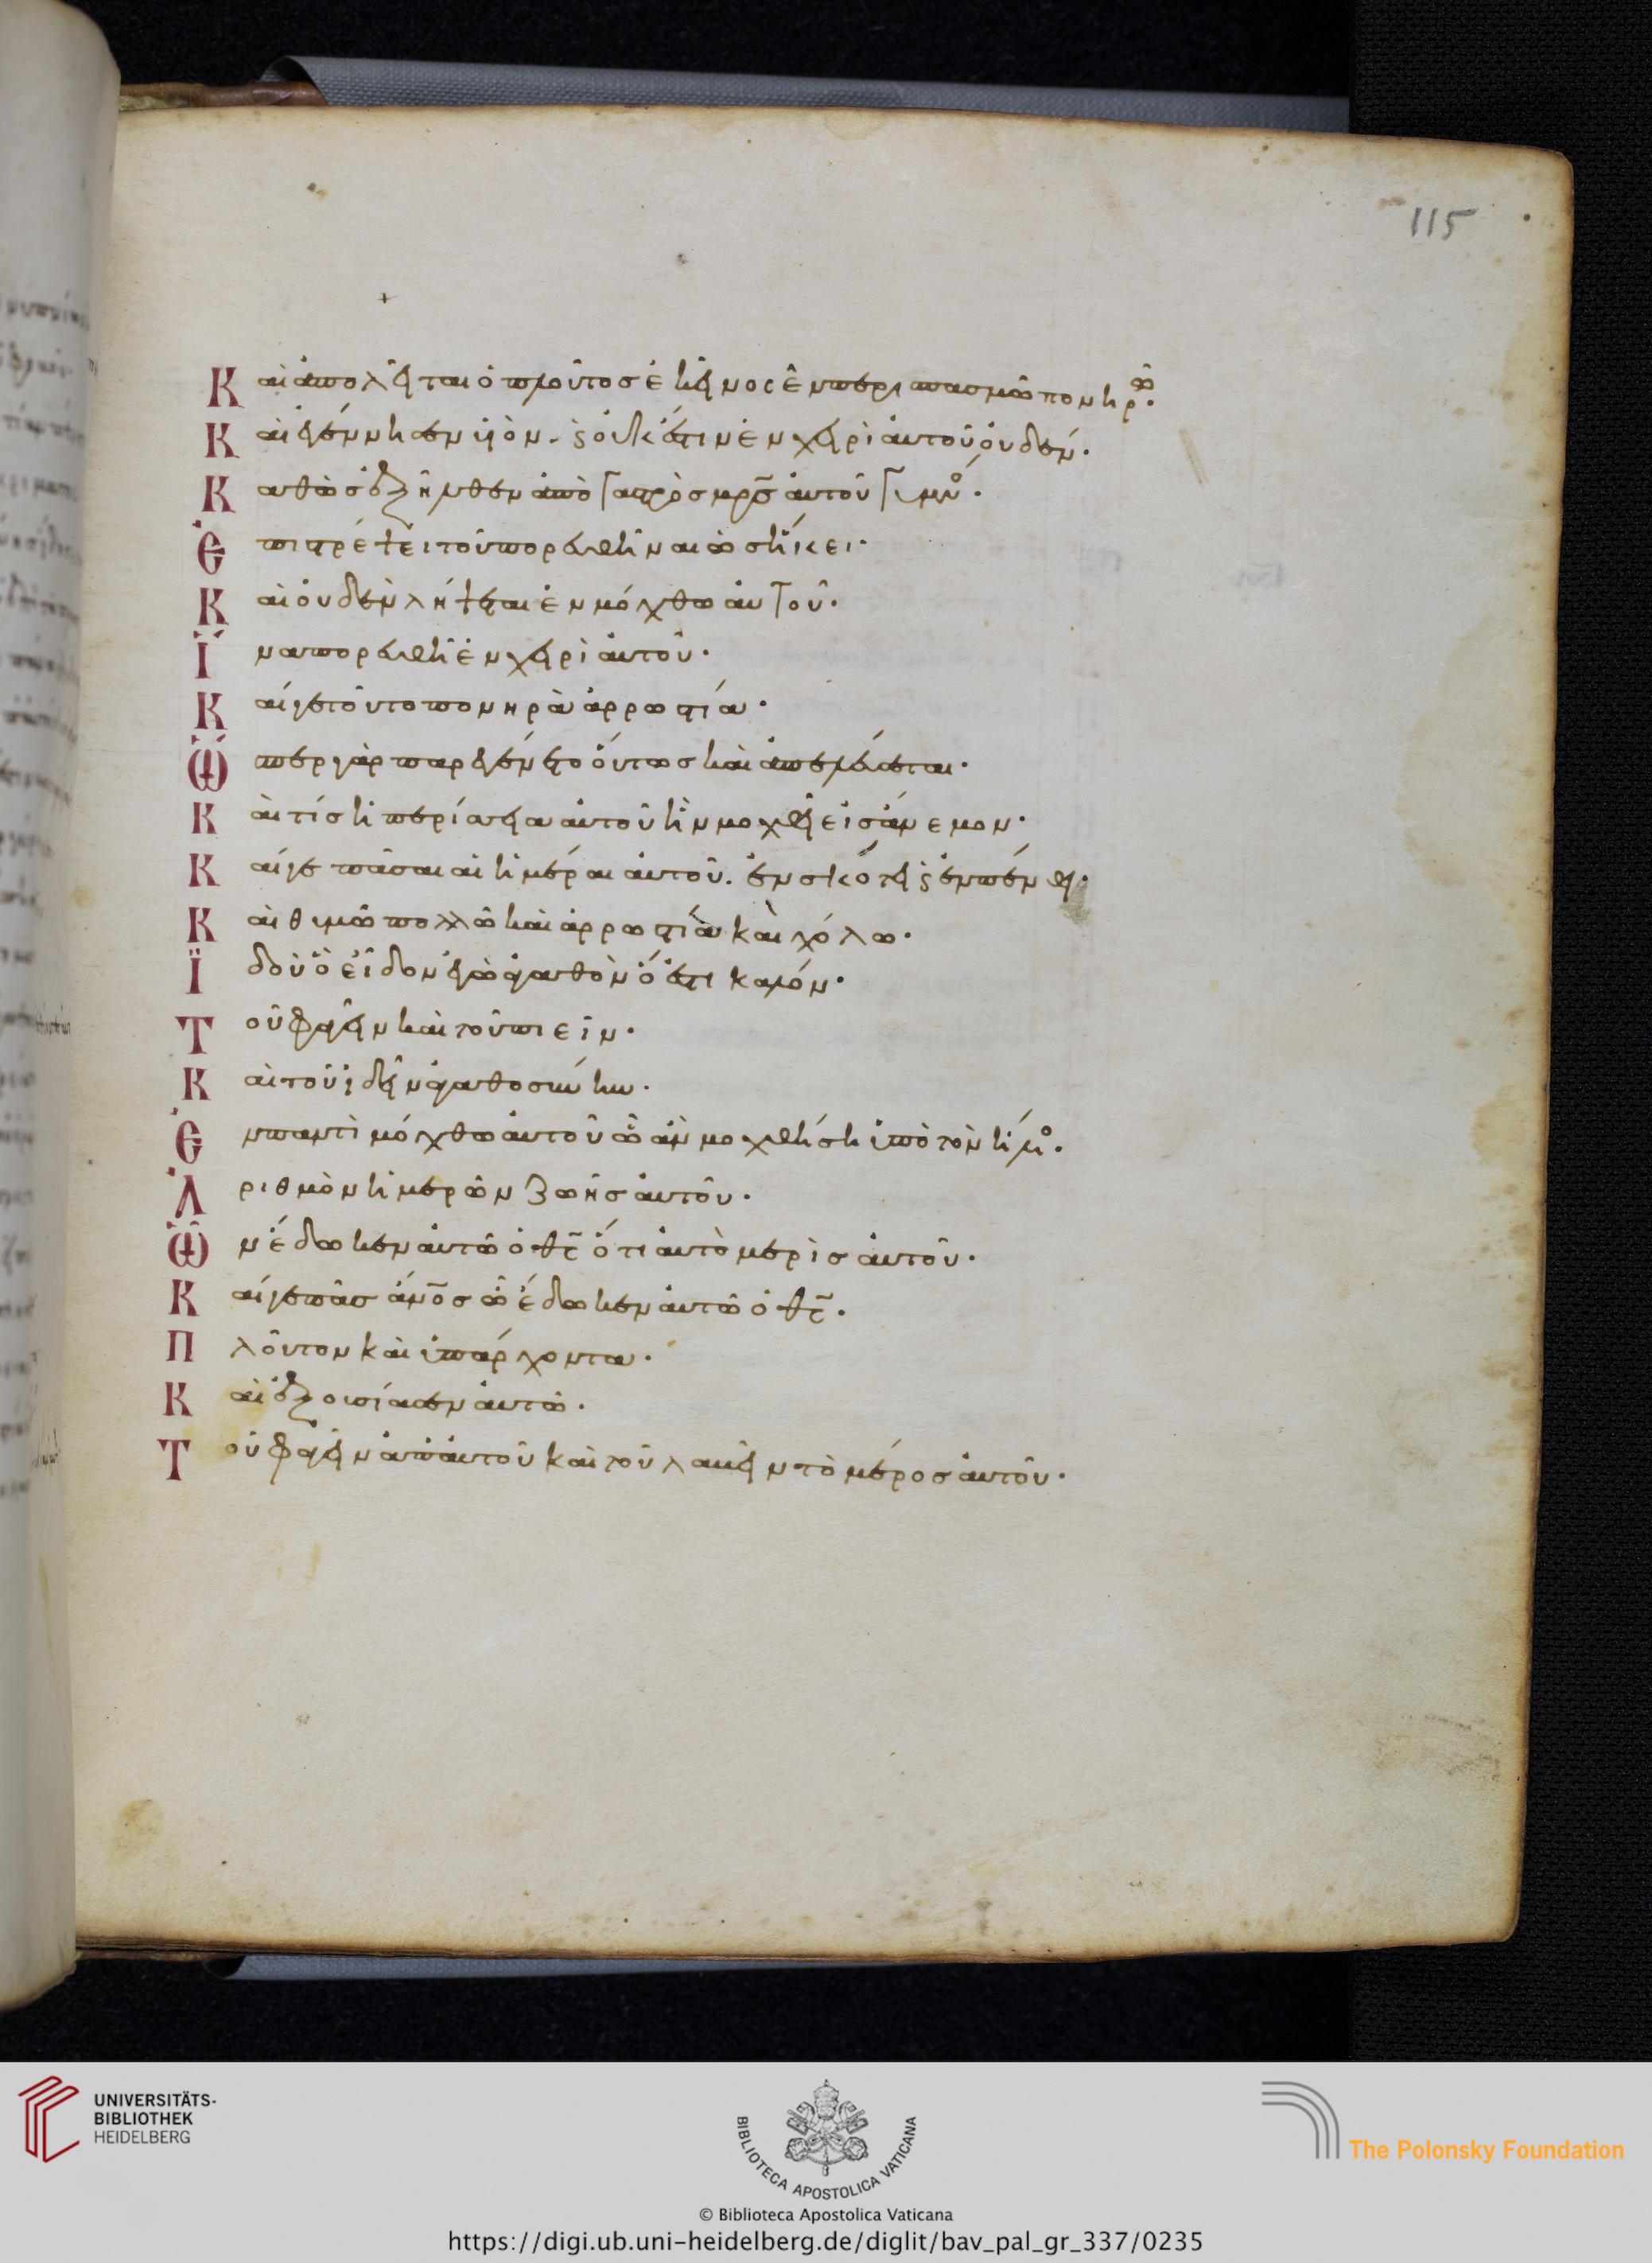 115
Καὶ ἀπολεῖται ὁ πλοῦτος ἐκεῖνος ἐν περισπασμῶ πονηρῶ·
Καὶ ἐγέννησεν υἱόν· ϗ οὐκ ἔστιν ἐν χειρὶ αὐτοῦ οὐδέν·
Καθὼς ἐξῆλθεν ἀπὸ γαστρὸς μρ̅ς αὐτοῦ γυμνὸ·
Ἐπιστρέψει τοῦ πορευθῆναι ὡς ἥκει·
Καὶ οὐδὲν λήψεται ἐν μόχθω αὐτοῦ·
Ἵνα πορευθῆ ἐν χειρὶ αὐτοῦ·
Καί γε τοῦτο πονηρὰ ἀρρωστία·
Ὥσπερ γὰρ παρεγένετο οὕτως καὶ ἀπελεύσεται·
Καὶ τίς ἡ περίσσεια αὐτοῦ ἣν μοχθεῖ εἰς ἄνεμον·
Καί γε πᾶσαι αἱ ἡμέραι αὐτοῦ. ἐν σκότει ϗ ἐν πένθει·
Καὶ θυμῶ πολλῶ καὶ ἀρρωστία καὶ χόλω·
Ἰδοὺ ὃ εἶδον ἐγὼ ἀγαθὸν ὅ ἐστι καλόν·
Τοῦ φαγεῖν καὶ τοῦ πιεῖν·
Καὶ τοῦ ἰδεῖν ἀγαθοσύνην·
Ἐν παντὶ μόχθω αὐτοῦ ᾧ ἂν μοχθήση ὑπὸ τὸν ἥλιο·
Ἀριθμὸν ἡμερῶν ζωῆς αὐτοῦ·
Ὧν ἔδωκεν αὐτῶ ὁ θς̅ ὅτι αὐτὸ μερὶς αὐτοῦ·
Καί γε πᾶς ἄνο̅ς ᾧ ἔδωκεν αὐτῶ ὁ θς̅·
Πλοῦτον καὶ ὑπάρχοντα·
Καὶ ἐξουσίασεν αὐτῶ·
Τοῦ φαγεῖν ἀπ' αὐτοῦ καὶ τοῦ λαβεῖν τὸ μέρος αὐτοῦ·
UNIVERSITÄTS-
BIBLIOTHEK
HEIDELBERG
BIBLIOTECA APOSTOLICA VATICANA
The Polonsky Foundation
© Biblioteca Apostolica Vaticana
https://digi.ub.uni-heidelberg.de/diglit/bav_pal_gr_337/0235